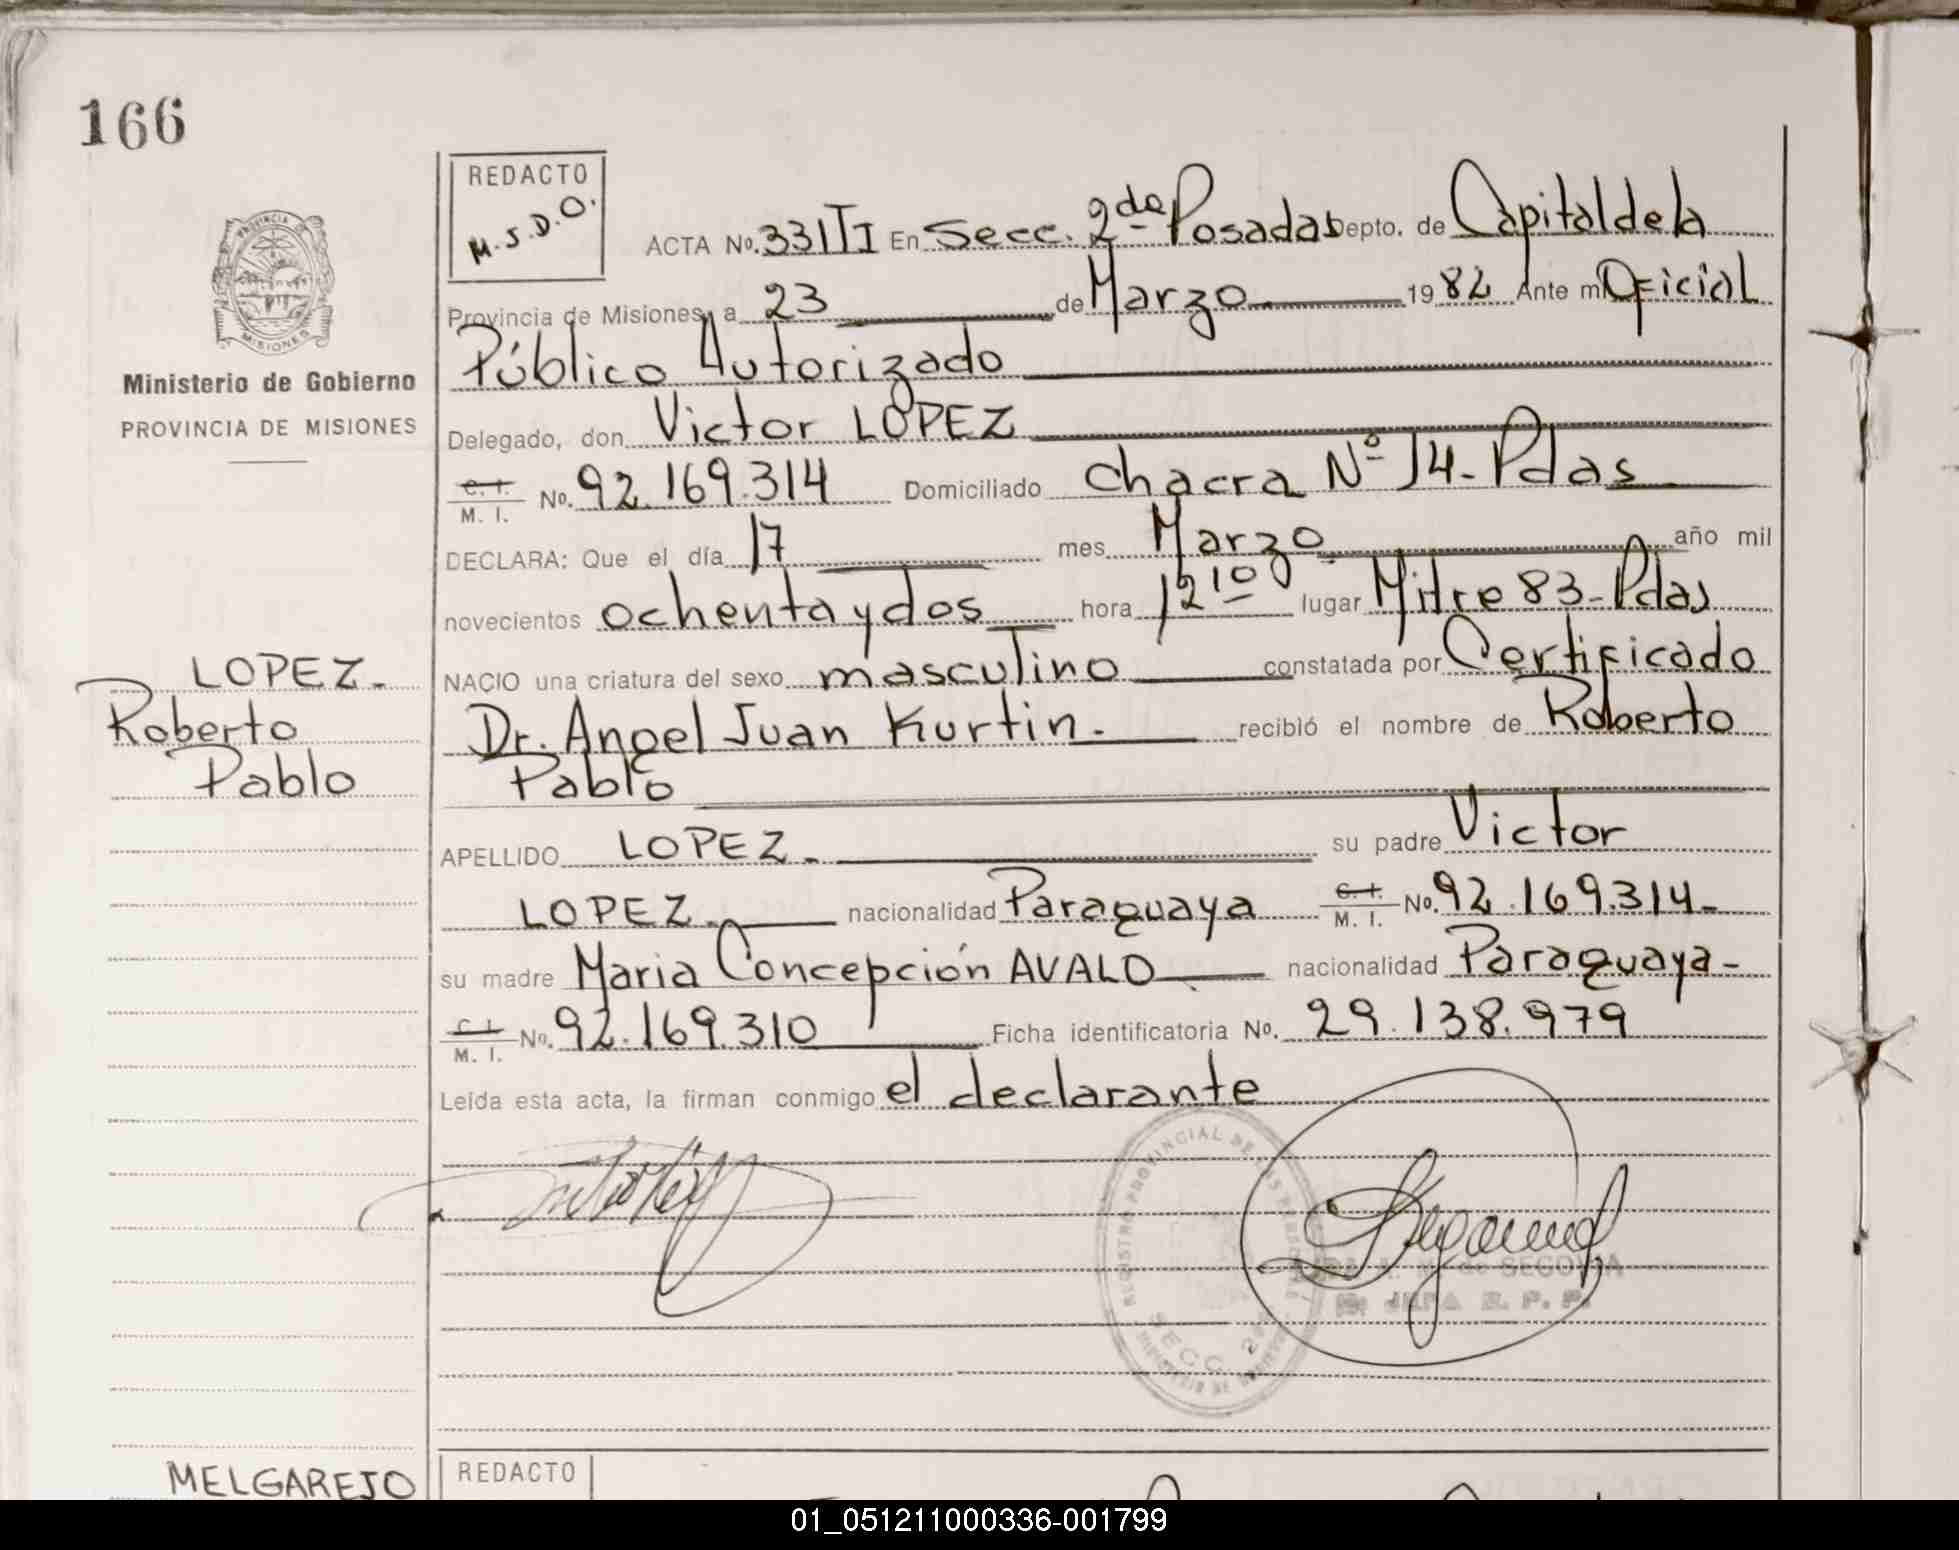 166
REDACTO
M.S.D.O.
ACTA No. 331TI En Secc. 2da Posadas Depto. de Capital de la
Provincia de Misiones, a 23 de Marzo 1982 Ante mi Oficial
Público Autorizado
Delegado, don Victor LOPEZ
C. I.
M. I. No. 92.169.314 Domiciliado Chacra Nº 14 - Pdas
DECLARA: Que el día 17 mes Marzo año mil
novecientos ochenta y dos hora 12 10 lugar Mitre 83 - Pdas
NACIO una criatura del sexo masculino constatada por Certificado
Dr. Angel Juan Kurtin. recibió el nombre de Roberto
Pablo
APELLIDO LOPEZ. su padre Victor
LOPEZ. nacionalidad Paraguaya C. I. M. I. No. 92.169.314-
su madre Maria Concepción AVALO nacionalidad Paraguaya-
C. I.
M. I. No. 92.169.310 Ficha identificatoria No. 29.138.979
Leída esta acta, la firman conmigo el declarante
PROVINCIA
MISIONES
Ministerio de Gobierno
PROVINCIA DE MISIONES
LOPEZ.
Roberto
Pablo
REGISTRO PROVINCIAL DE LAS PERSONAS
SECC. 2da
de SEGOVIA
JEFA R. P. P.
MELGAREJO
REDACTO
01_051211000336-001799